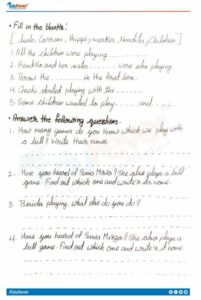 Edufever
• Fill in the blanks:
[ ludo, Carrom, thippy, monker, Nandita, Children ]
1. All the children were playing ..........
2. Mandka and her sister .......... were also playing.
3. Throw the .......... in the first box.
4. Chachi started playing with the ..........
5. Some children wanted to play ......... and .........
• Answer the following question.
1. How many games do you know which we play with
a ball? Write their name.
2. Have you heard of Sania Mirza? She also plays a ball
game. Find out which one and write its name.
3. Besides playing, what else do you do?
4. Have you heard of Sania Mirza? She also plays a
ball game. Find out which one and write its name.
/Edufever